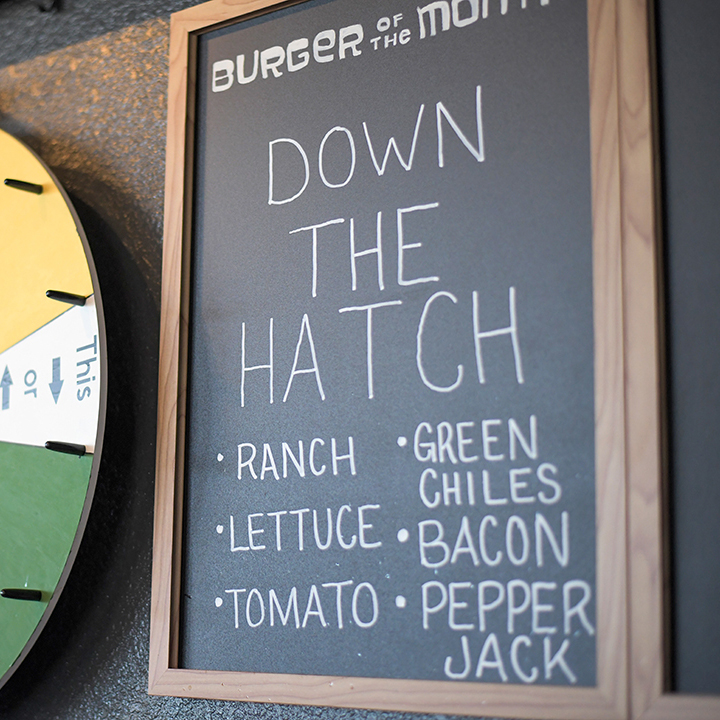 BURGER OF THE MONTH
DOWN
THE
HATCH
• RANCH
• LETTUCE
• TOMATO
• GREEN
CHILES
• BACON
• PEPPER
JACK
This
or